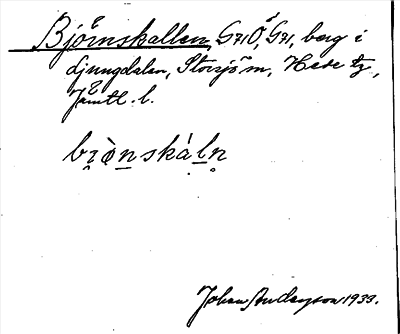 Björnskallen, G710, G71, berg i
Ljungdalen, Storsjö sn, Hede tg,
Jämtl. l.
bɪ̯ònskàln̥
Johan Anderson 1933.